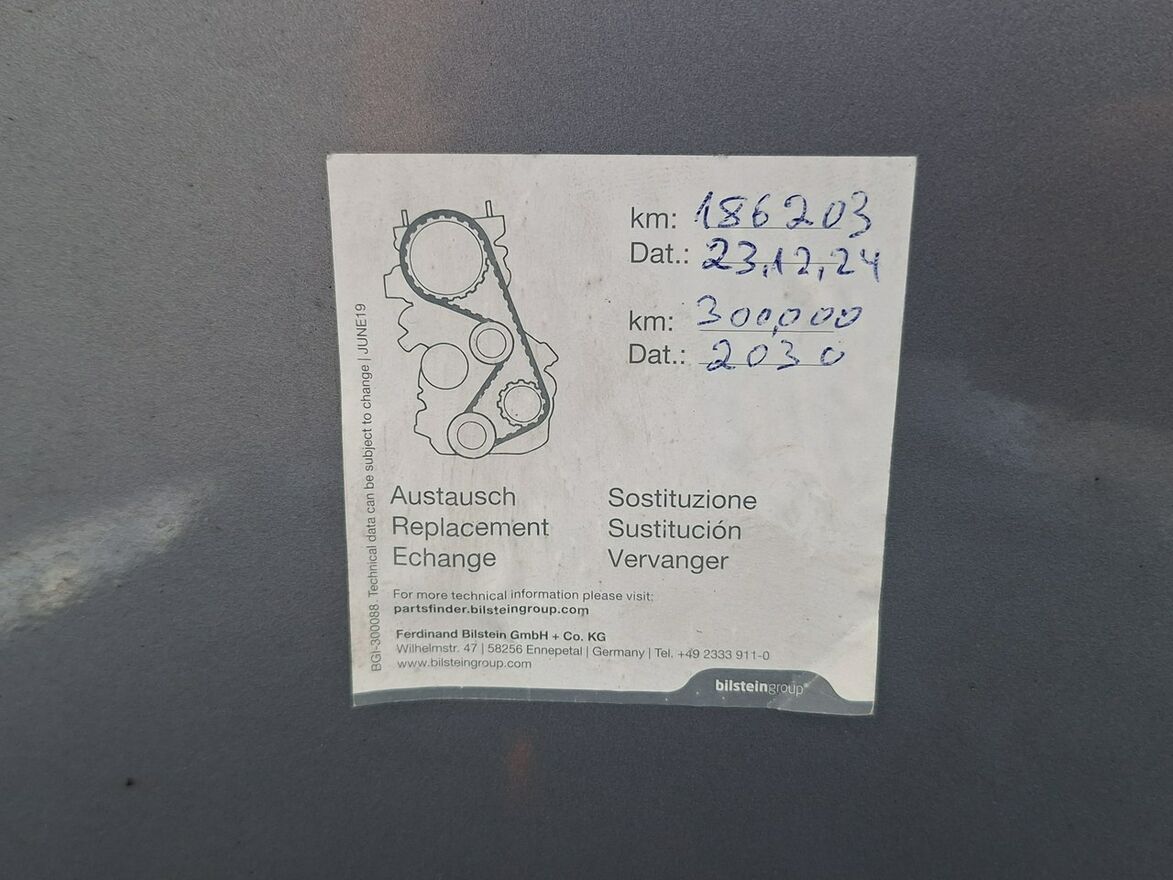 km: 186203
Dat.: 23,12,24
km: 300,000
Dat.: 2030
BGI-300088 Technical data can be subject to change | JUNE19
Austausch
Replacement
Echange
Sostituzione
Sustitución
Vervanger
For more technical information please visit:
partsfinder.bilsteingroup.com
Ferdinand Bilstein GmbH + Co. KG
Wilhelmstr. 47 | 58256 Ennepetal | Germany | Tel. +49 2333 911-0
www.bilsteingroup.com
bilsteingroup®